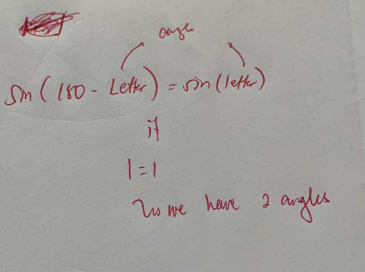 angle
sin(180 - Letter) = sin(letter)
if
1=1
so we have 2 angles